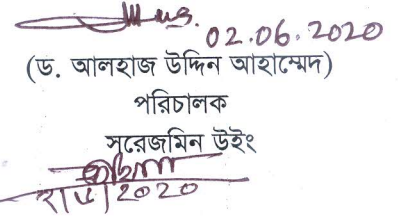 02.06.2020
(ড. আলহাজ উদ্দিন আহাম্মেদ)
পরিচালক
সরেজমিন উইং
২/৬/2020